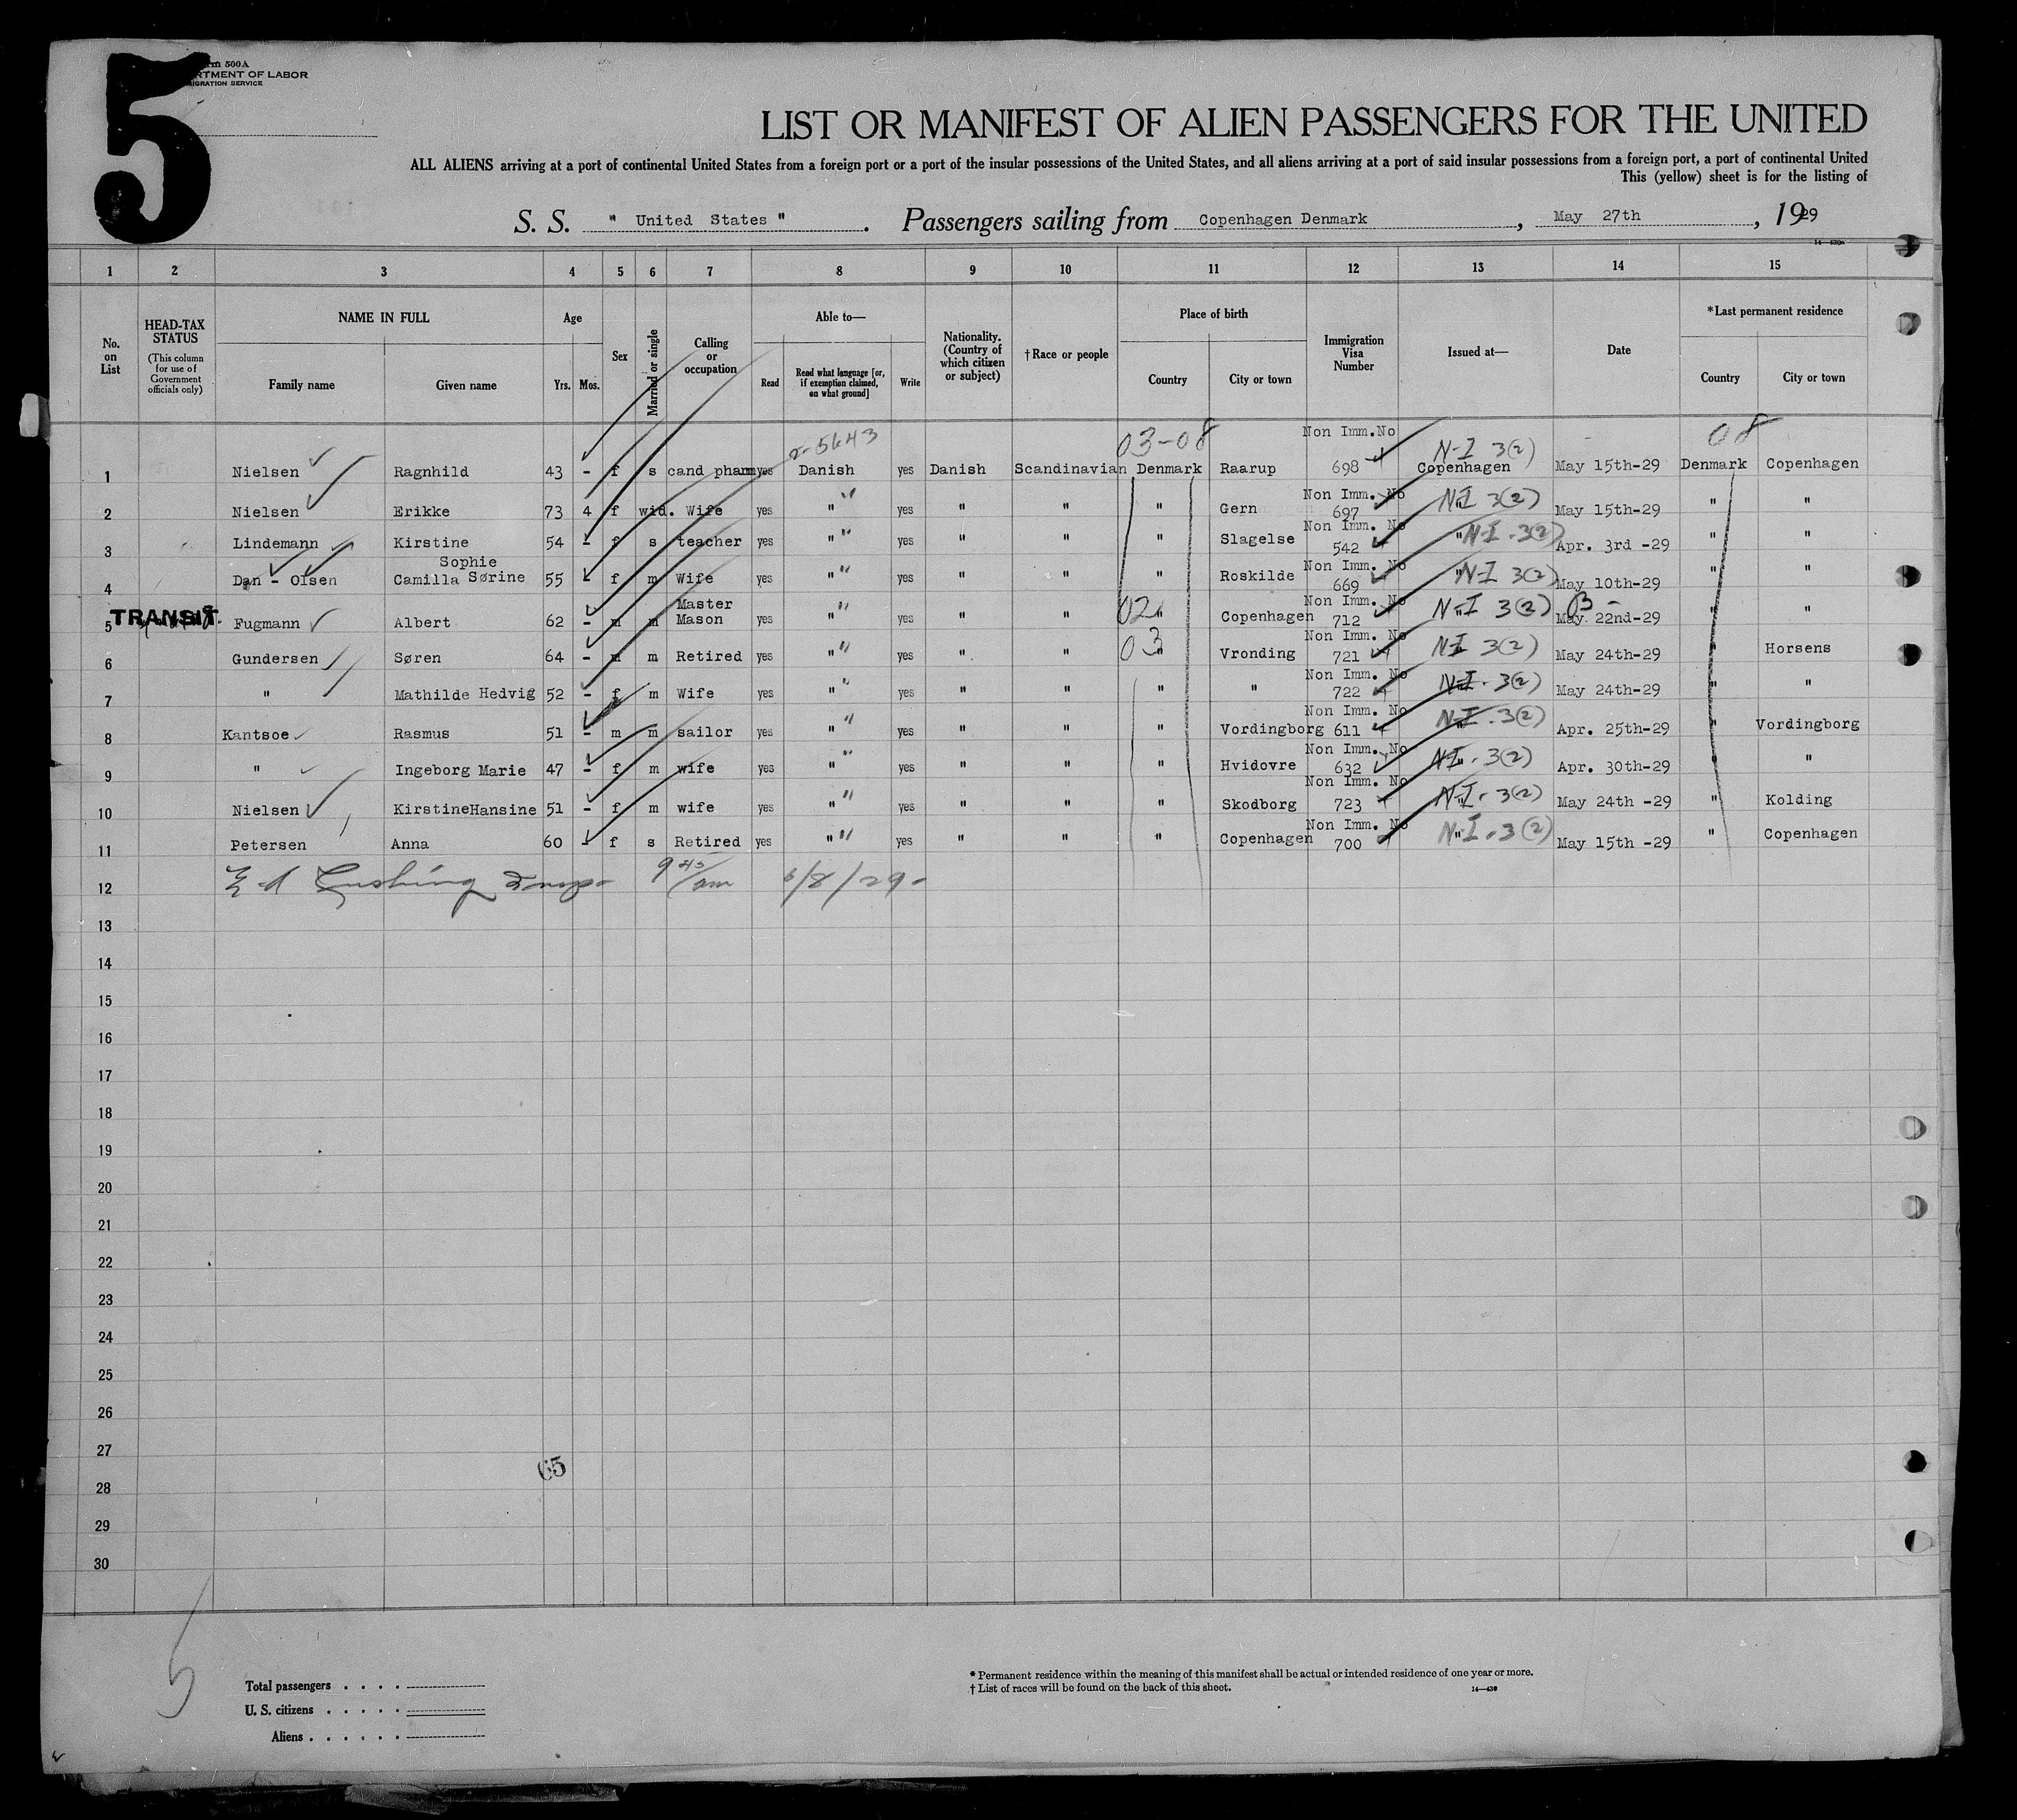 5
rm 500A
RTMENT OF LABOR
IGRATION SERVICE
LIST OR MANIFEST OF ALIEN PASSENGERS FOR THE UNITED
ALL ALIENS arriving at a port of continental United States from a foreign port or a port of the insular possessions of the United States, and all aliens arriving at a port of said insular possessions from a foreign port, a part of continental United
This (yellow) sheet is for the listing of
S. S. " United States ". Passengers sailing from Copenhagen Denmark, May 27th, 1929
14—430a
1 2 3 4 5 6 7 8 9 10 11 12 13 14 15
No. on List
HEAD-TAX STATUS (This column for use of Government officials only)
NAME IN FULL Family name Given name
Age Yrs. Mos.
Sex
Married or single
Calling or occupation
Able to— Read Read what language [or, if exemption claimed, on what ground] Write
Nationality. (Country of which citizen or subject)
†Race or people
Place of birth Country City or town
Immigration Visa Number
Issued at—
Date
*Last permanent residence Country City or town
5643 03-08 08
1 Nielsen Ragnhild 43 - f s cand pharm yes Danish yes Danish Scandinavian Denmark Raarup Non Imm.No 698 N-I 3(2) Copenhagen May 15th-29 Denmark Copenhagen
2 Nielsen Erikke 73 4 f wid. Wife yes " yes " " " Gern Non Imm. No 697 " N-I 3(2) May 15th-29 " "
3 Lindemann Kirstine 54 - f s teacher yes " yes " " " Slagelse Non Imm. No 542 " N-I 3(2) Apr. 3rd -29 " "
4 Dan - Olsen Camilla Sophie Sørine 55 - f m Wife yes " yes " " " Roskilde Non Imm. No 669 " N-I 3(2) May 10th-29 " "
TRANSIT
5 Fugmann Albert 62 - m m Master Mason yes " yes " " 02 " Copenhagen Non Imm. No 712 " N-I 3(2) May 22nd-29 " "
6 Gundersen Søren 64 - m m Retired yes " yes " " 03 " Vronding Non Imm. No 721 " N-I 3(2) May 24th-29 " Horsens
7 " Mathilde Hedvig 52 - f m Wife yes " yes " " " " Non Imm. No 722 " N-I 3(2) May 24th-29 " "
8 Kantsoe Rasmus 51 - m m sailor yes " yes " " " Vordingborg Non Imm. No 611 " N-I 3(2) Apr. 25th-29 " Vordingborg
9 " Ingeborg Marie 47 - f m wife yes " yes " " " Hvidovre Non Imm. No 632 " N-I 3(2) Apr. 30th-29 " "
10 Nielsen Kirstine Hansine 51 - f m wife yes " yes " " " Skodborg Non Imm. No 723 " N-I 3(2) May 24th -29 " Kolding
11 Petersen Anna 60 - f s Retired yes " yes " " " Copenhagen Non Imm. No 700 " N-I 3(2) May 15th -29 " Copenhagen
12 9 45/am 6/8/29
13
14
15
16
17
18
19
20
21
22
23
24
25
26
27
65
28
29
30
Total passengers . . . .
U. S. citizens . . . . .
Aliens . . . . . .
* Permanent residence within the meaning of this manifest shall be actual or intended residence of one year or more.
† List of races will be found on the back of this sheet.
14—430